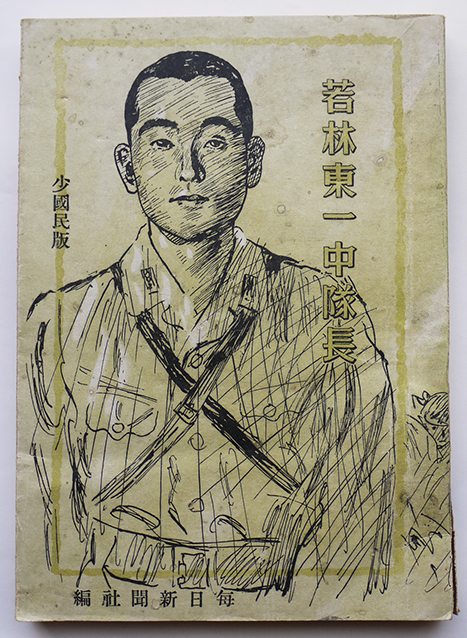 若林東一中隊長
少國民版
毎日新聞社編